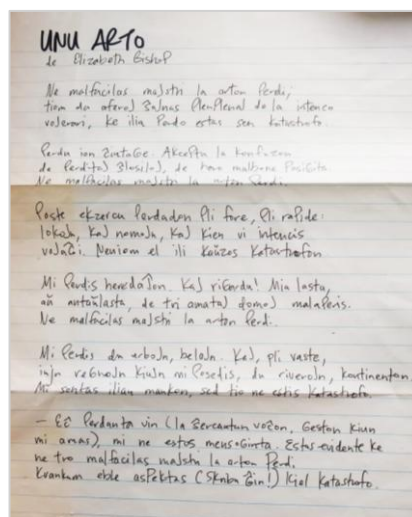 UNU ARTO
de Elizabeth Bishop
Ne malfacilas majstri la arton perdi;
tiom da aferoj ŝajnas plenplenaj de la intenco
ke ilia perdo estas sen katastrofo.
Perdu ion ĉiutage. Akceptu la konfuzon
de perditaj ŝlosiloj, de horo malbone
Ne malfacilas majstri la arton perdi.
Poste ekzercu perdadon pli fore, pli rapide:
lokojn, kaj nomojn, kaj kien vi intencis
Neniom el ili kaŭzos katastrofon.
Mi perdis horloĝon. Kaj rigardu! Mia lasta,
aŭ antaŭlasta, de tri amataj domoj malaperis.
Ne malfacilas majstri la arton perdi.
Mi perdis du urbojn, belajn. Kaj, pli vaste,
regnojn kiujn mi posedis, du riverojn, kontinenton.
Mi sentas ilian mankon, sed tio ne estis katastrofo.
— Eĉ perdante vin (la ŝercantan voĉon, geston kiun
mi amas), mi ne estos mensoginta. Estas evidente ke
ne tro malfacilas majstri la arton perdi.
Kvankam eble aspektas (Skribu ĝin!) kiel katastrofo.